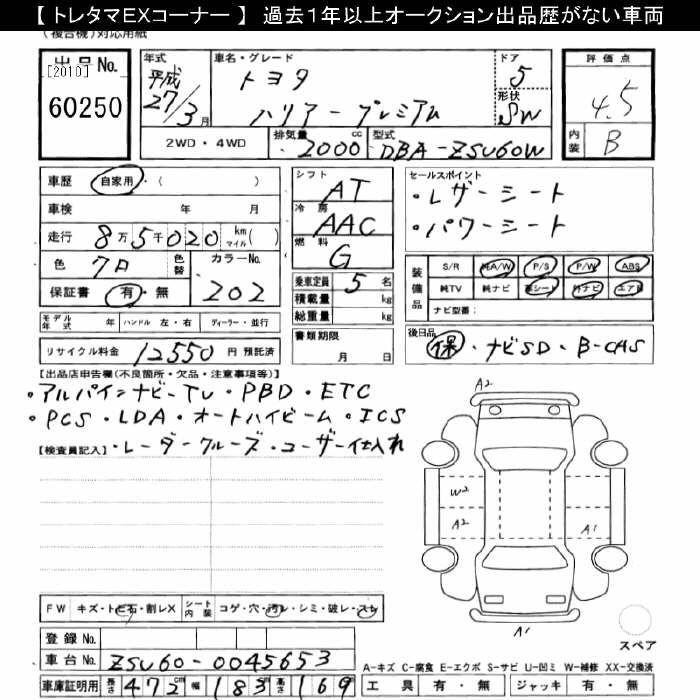 【 トレタマEXコーナー 】 過去１年以上オークション出品歴がない車両
(複合機)対応用紙
出品No. 年式 車名・グレード ドア 評価点
[2010] 平成 トヨタ 5 4.5
60250 27/3月 ハリアー プレミアム 形状 SW
2WD・4WD 排気量 2000 cc 型式 DBA-ZSU60W 内装 B
車歴 自家用・( ) シフト AT セールスポイント
車検 年 月 冷房 AAC ・レザーシート
走行 8万5千020 km マイル( ) 燃料 G ・パワーシート
色 クロ 色替 カラーNo. 乗車定員 5 名 装備品 S/R 純A/W P/S P/W ABS
保証書 有・無 202 積載量 kg 純TV 純ナビ 革シート 外ナビ エアB
総重量 kg ナビ型番:
モデル年式 年 ハンドル 左・右 ディーラー・並行 書類期限 後日品
リサイクル料金 12550 円 預託済 月 日 保・ナビSD・B-CAS
【出品店申告欄(不良箇所・欠品・注意事項等)】
・アルパインナビ-TV・PBD・ETC
・PCS・LDA・オートハイビーム・ICS
【検査員記入】・レーダークルーズ・ユーザー仕入れ
A2
W2
A2 A1
A1
FW キズ・トビ石・割レX シート内装 コゲ・穴・汚レ・シミ・破レ・スレ
登録No. スペア
車台No. ZSU60-0045653 A-キズ C-腐食 E-エクボ S-サビ U-凹ミ W-補修 XX-交換済
車庫証明用 長さ 472 cm 幅 183 cm 高さ 169 工具 有・無 ジャッキ 有・無